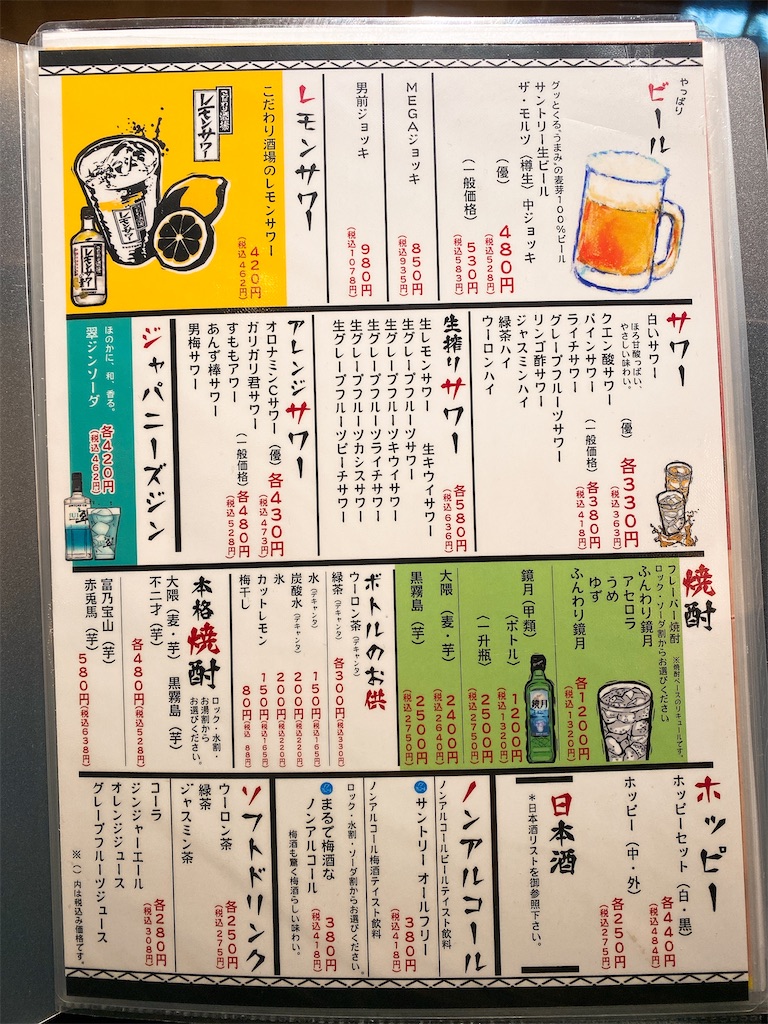 やっぱり
ビール
グッとくる、“うまみ”の麦芽100%ビール
サントリー生ビール
ザ・モルツ（樽生）中ジョッキ
（優）
480円
（税込528円）
（一般価格）
530円
（税込583円）
MEGAジョッキ
850円
（税込935円）
男前ジョッキ
980円
（税込1078円）
レモンサワー
こだわり酒場のレモンサワー
420円
（税込462円）
こだわり酒場
レモンサワー
サワー
ほろ甘酸っぱい、
やさしい味わい。
白いサワー
クエン酸サワー
パインサワー
ライチサワー
グレープフルーツサワー
リンゴ酢サワー
ジャスミンハイ
緑茶ハイ
ウーロンハイ
（優）
各330円
（税込363円）
（一般価格）
各380円
（税込418円）
生搾りサワー
生レモンサワー
生キウイサワー
生グレープフルーツサワー
生グレープフルーツキウイサワー
生グレープフルーツライチサワー
生グレープフルーツカシスサワー
生グレープフルーツピーチサワー
各580円
（税込636円）
アレンジサワー
オロナミンCサワー
ガリガリ君サワー
すももアワー
あんず棒サワー
男梅サワー
（優）
各430円
（税込473円）
（一般価格）
各480円
（税込528円）
ジャパニーズジン
ほのかに、和、香る。
翠ジンソーダ
各420円
（税込462円）
焼酎
フレーバー焼酎
※焼酎ベースのリキュールです。
ロック・ソーダ割からお選び下さい
ふんわり鏡月
アセロラ
うめ
ゆず
ふんわり鏡月
各1200円
（税込1320円）
鏡月（甲類）
（ボトル）
1200円
（税込1320円）
（一升瓶）
2500円
（税込2750円）
鏡月
大隈（麦・芋）
2400円
（税込2640円）
黒霧島（芋）
2500円
（税込2750円）
ボトルのお供
ウーロン茶（デキャンタ）
緑茶（デキャンタ）
各300円（税込330円）
水（デキャンタ）
150円（税込165円）
炭酸水（デキャンタ）
200円（税込220円）
氷
200円（税込220円）
カットレモン
150円（税込165円）
梅干し
80円（税込 88円）
本格焼酎
ロック・水割・
お湯割から
お選びください。
大隈（麦・芋）
黒霧島（芋）
不二才（芋）
各480円（税込528円）
富乃宝山（芋）
赤兎馬（芋）
580円（税込638円）
ホッピー
ホッピーセット（白・黒）
各440円
（税込484円）
ホッピー（中・外）
各250円
（税込275円）
日本酒
*日本酒リストを御参照下さい。
ノンアルコール
ノンアルコールビールテイスト飲料
サントリー オールフリー
380円
（税込418円）
ノンアルコール梅酒テイスト飲料
ロック・水割・ソーダ割からお選びください。
まるで梅酒な
ノンアルコール
380円
（税込418円）
梅酒も驚く梅酒らしい味わい。
ソフトドリンク
ウーロン茶
緑茶
ジャスミン茶
各250円
（税込275円）
コーラ
ジンジャーエール
オレンジジュース
グレープフルーツジュース
各280円
（税込308円）
※（）内は税込み価格です。